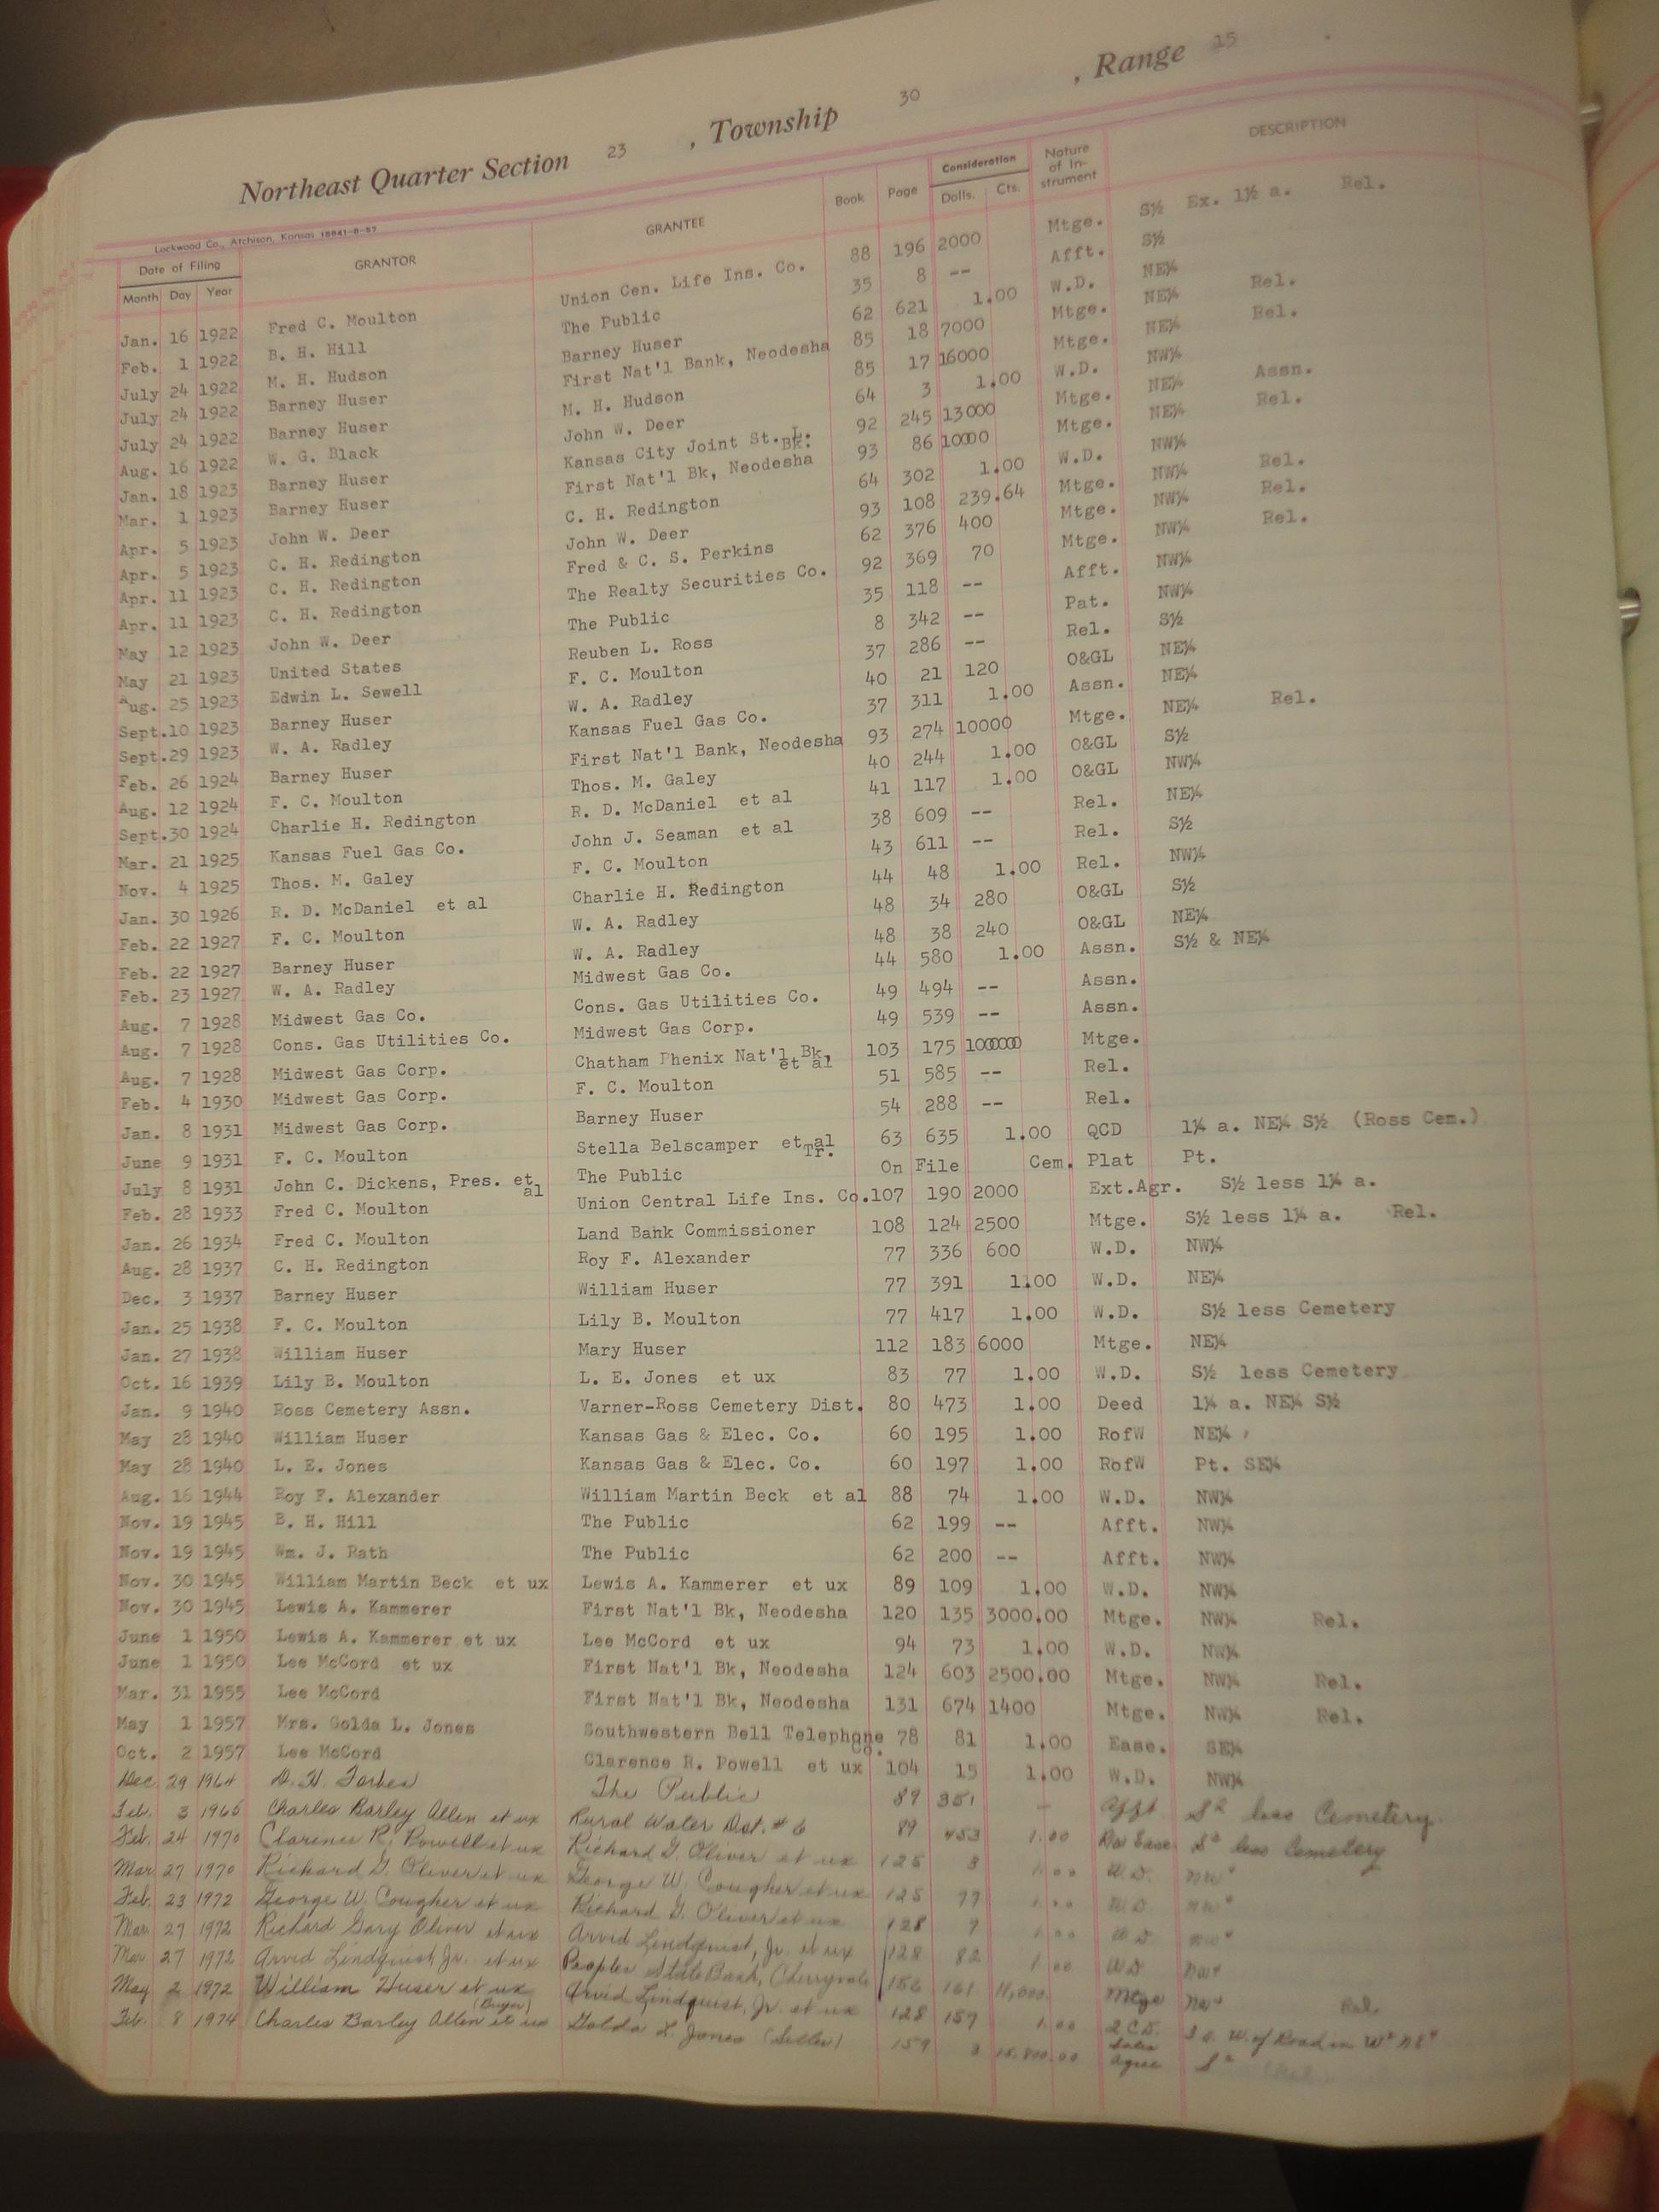 Northeast Quarter Section 23 , Township 30 , Range 15
Lockwood Co., Atchison, Kansas 18841-8-57
Date of Filing GRANTOR GRANTEE Book Page Consideration Nature of In- strument DESCRIPTION
Month Day Year Dolls. Cts.
Jan. 16 1922 Fred C. Moulton Union Cen. Life Ins. Co. 88 196 2000 Mtge. S½ Ex. 1½ a. Rel.
Feb. 1 1922 B. H. Hill The Public 35 8 -- Afft. S½
July 24 1922 M. H. Hudson Barney Huser 62 621 1.00 W.D. NE¼
July 24 1922 Barney Huser First Nat'l Bank, Neodesha 85 18 7000 Mtge. NE¼ Rel.
July 24 1922 Barney Huser M. H. Hudson 85 17 16000 Mtge. NE¼ Rel.
Aug. 16 1922 W. G. Black John W. Deer 64 3 1.00 W.D. NW¼
Jan. 18 1923 Barney Huser Kansas City Joint St. L. Bk. 92 245 13000 Mtge. NE¼ Assn.
Mar. 1 1923 Barney Huser First Nat'l Bk, Neodesha 93 86 10000 Mtge. NE¼ Rel.
Apr. 5 1923 John W. Deer C. H. Redington 64 302 1.00 W.D. NW¼
Apr. 5 1923 C. H. Redington John W. Deer 93 108 239.64 Mtge. NW¼ Rel.
Apr. 11 1923 C. H. Redington Fred & C. S. Perkins 62 376 400 Mtge. NW¼ Rel.
Apr. 11 1923 C. H. Redington The Realty Securities Co. 92 369 70 Mtge. NW¼ Rel.
May 12 1923 John W. Deer The Public 35 118 -- Afft. NW¼
May 21 1923 United States Reuben L. Ross 8 342 -- Pat. NW¼
Aug. 25 1923 Edwin L. Sewell F. C. Moulton 37 286 -- Rel. S½
Sept.10 1923 Barney Huser W. A. Radley 40 21 120 O&GL NE¼
Sept.29 1923 W. A. Radley Kansas Fuel Gas Co. 37 311 1.00 Assn. NE¼
Feb. 26 1924 Barney Huser First Nat'l Bank, Neodesha 93 274 10000 Mtge. NE¼ Rel.
Aug. 12 1924 F. C. Moulton Thos. M. Galey 40 244 1.00 O&GL S½
Sept.30 1924 Charlie H. Redington R. D. McDaniel et al 41 117 1.00 O&GL NW¼
Mar. 21 1925 Kansas Fuel Gas Co. John J. Seaman et al 38 609 -- Rel. NE¼
Nov. 4 1925 Thos. M. Galey F. C. Moulton 43 611 -- Rel. S½
Jan. 30 1926 R. D. McDaniel et al Charlie H. Redington 44 48 1.00 Rel. NW¼
Feb. 22 1927 F. C. Moulton W. A. Radley 48 34 280 O&GL S½
Feb. 22 1927 Barney Huser W. A. Radley 48 38 240 O&GL NE¼
Feb. 23 1927 W. A. Radley Midwest Gas Co. 44 580 1.00 Assn. S½ & NE¼
Aug. 7 1928 Midwest Gas Co. Cons. Gas Utilities Co. 49 494 -- Assn.
Aug. 7 1928 Cons. Gas Utilities Co. Midwest Gas Corp. 49 539 -- Assn.
Aug. 7 1928 Midwest Gas Corp. Chatham Phenix Nat'l Bk, et al 103 175 1000000 Mtge.
Feb. 4 1930 Midwest Gas Corp. F. C. Moulton 51 585 -- Rel.
Jan. 8 1931 Midwest Gas Corp. Barney Huser 54 288 -- Rel.
June 9 1931 F. C. Moulton Stella Belscamper et al Tr. 63 635 1.00 QCD 1¼ a. NE¼ S½ (Ross Cem.)
July 8 1931 John C. Dickens, Pres. et al The Public On File Cem. Plat Pt.
Feb. 28 1933 Fred C. Moulton Union Central Life Ins. Co. 107 190 2000 Ext.Agr. S½ less 1¼ a.
Jan. 26 1934 Fred C. Moulton Land Bank Commissioner 108 124 2500 Mtge. S½ less 1¼ a. Rel.
Aug. 28 1937 C. H. Redington Roy F. Alexander 77 336 600 W.D. NW¼
Dec. 3 1937 Barney Huser William Huser 77 391 1.00 W.D. NE¼
Jan. 25 1938 F. C. Moulton Lily B. Moulton 77 417 1.00 W.D. S½ less Cemetery
Jan. 27 1938 William Huser Mary Huser 112 183 6000 Mtge. NE¼
Oct. 16 1939 Lily B. Moulton L. E. Jones et ux 83 77 1.00 W.D. S½ less Cemetery
Jan. 9 1940 Ross Cemetery Assn. Varner-Ross Cemetery Dist. 80 473 1.00 Deed 1¼ a. NE¼ S½
May 28 1940 William Huser Kansas Gas & Elec. Co. 60 195 1.00 RofW NE¼
May 28 1940 L. E. Jones Kansas Gas & Elec. Co. 60 197 1.00 RofW Pt. SE¼
Aug. 16 1944 Roy F. Alexander William Martin Beck et al 88 74 1.00 W.D. NW¼
Nov. 19 1945 B. H. Hill The Public 62 199 -- Afft. NW¼
Nov. 19 1945 Wm. J. Rath The Public 62 200 -- Afft. NW¼
Nov. 30 1945 William Martin Beck et ux Lewis A. Kammerer et ux 89 109 1.00 W.D. NW¼
Nov. 30 1945 Lewis A. Kammerer First Nat'l Bk, Neodesha 120 135 3000.00 Mtge. NW¼ Rel.
June 1 1950 Lewis A. Kammerer et ux Lee McCord et ux 94 73 1.00 W.D. NW¼
June 1 1950 Lee McCord et ux First Nat'l Bk, Neodesha 124 603 2500.00 Mtge. NW¼ Rel.
Mar. 31 1955 Lee McCord First Nat'l Bk, Neodesha 131 674 1400 Mtge. NW¼ Rel.
May 1 1957 Mrs. Golda L. Jones Southwestern Bell Telephone Co. 78 81 1.00 Ease. SE¼
Oct. 2 1957 Lee McCord Clarence R. Powell et ux 104 15 1.00 W.D. NW¼
Dec. 29 1964 D. H. Forbes The Public 89 351 - Afft S½ less Cemetery
Feb. 3 1965 Charles Barley Allen et ux Rural Water Dist. #6 89 453 1.00 Rw Ease S½ less Cemetery
Feb. 24 1970 Clarence R. Powell et ux Richard G. Oliver et ux 125 8 1.00 W.D. NW¼
Mar 27 1970 Richard G. Oliver et ux George W. Cougher et ux 125 77 1.00 W.D. NW¼
Feb. 23 1972 George W. Cougher et ux Richard G. Oliver et ux 128 9 1.00 W.D. NW¼
Mar 27 1972 Richard Gary Oliver et ux Arvid Lindquist, Jr. et ux 128 82 1.00 W.D. NW¼
Mar. 27 1972 Arvid Lindquist, Jr. et ux Peoples State Bank, Cherryvale 156 161 11,000. Mtge NW¼ Rel.
May 2 1972 William Huser et ux Arvid Lindquist, Jr. et ux 128 157 1.00 Q.C.D. W. of Road in W½ NE¼
Feb. 8 1974 Charles Barley Allen et ux (Buyer) Golda L. Jones (Seller) 159 15,800.00 Sales Agree S½